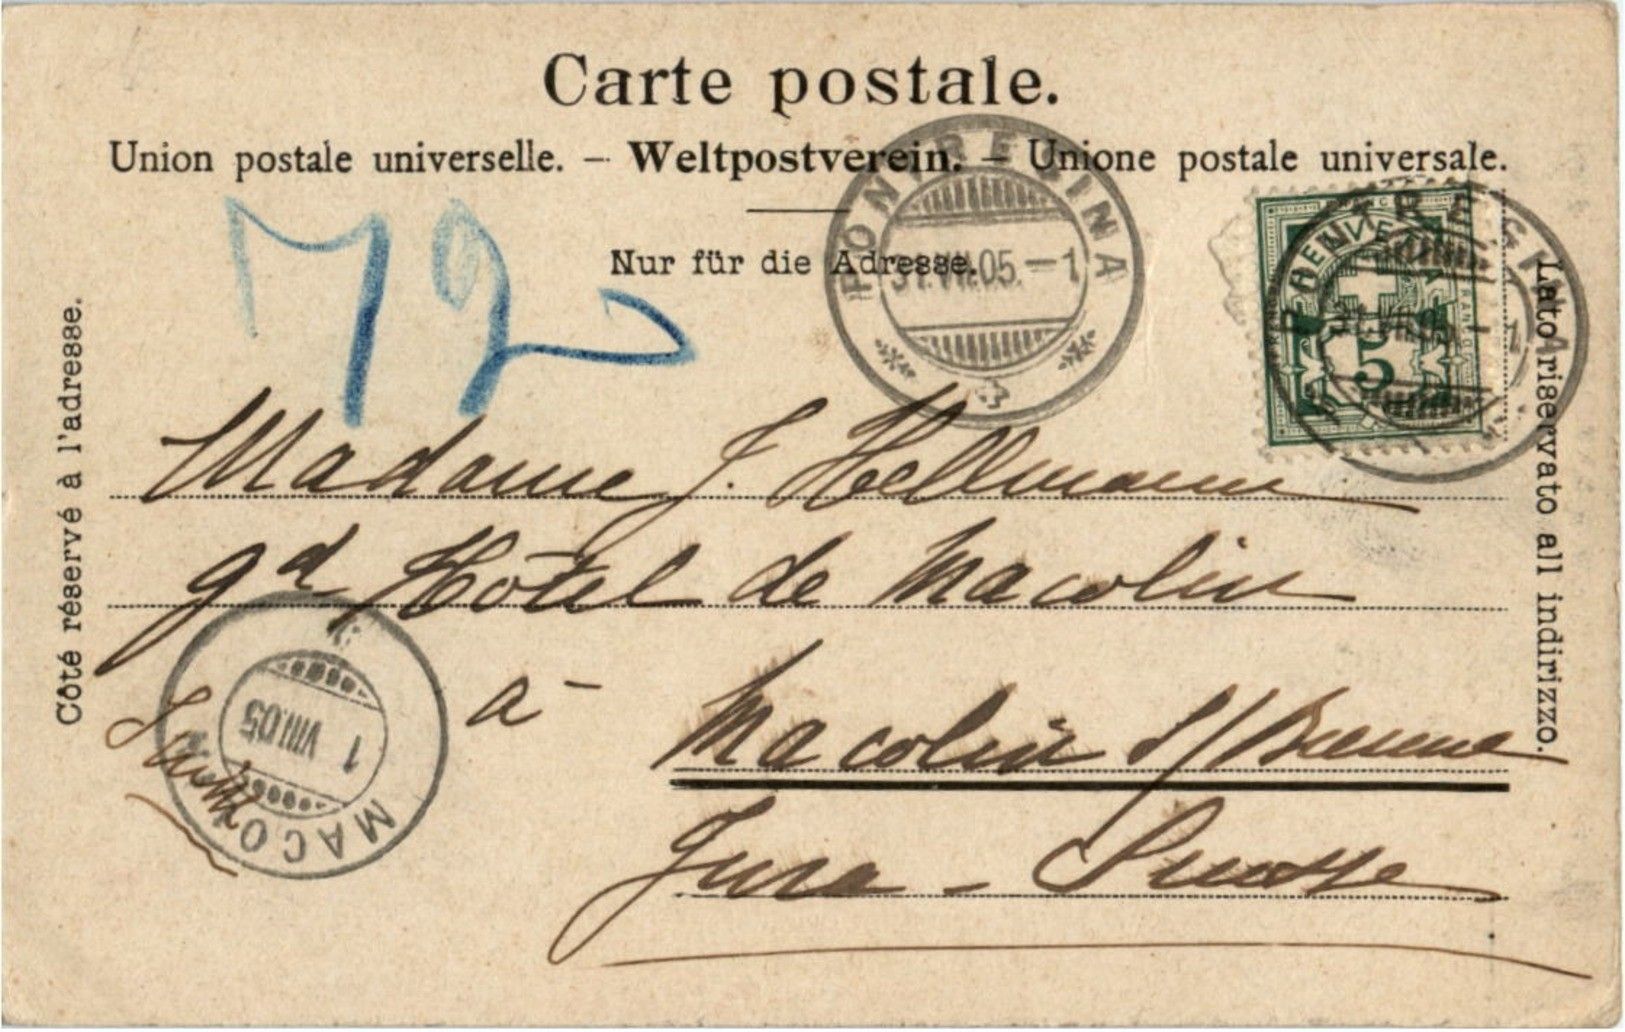 Carte postale.
Union postale universelle. – Weltpostverein. – Unione postale universale.
Nur für die Adresse.
Côté réservé à l'adresse.
Lato riservato all indirizzo.
72
PONTRESINA
31.VII.05.–1
PONTRESINA
HELVETIA
5
Madame J. Hellmann
gd Hôtel de Macolin
à
Macolin s/ Bienne
Jura - Suisse
MACOLIN
1 VIII.05